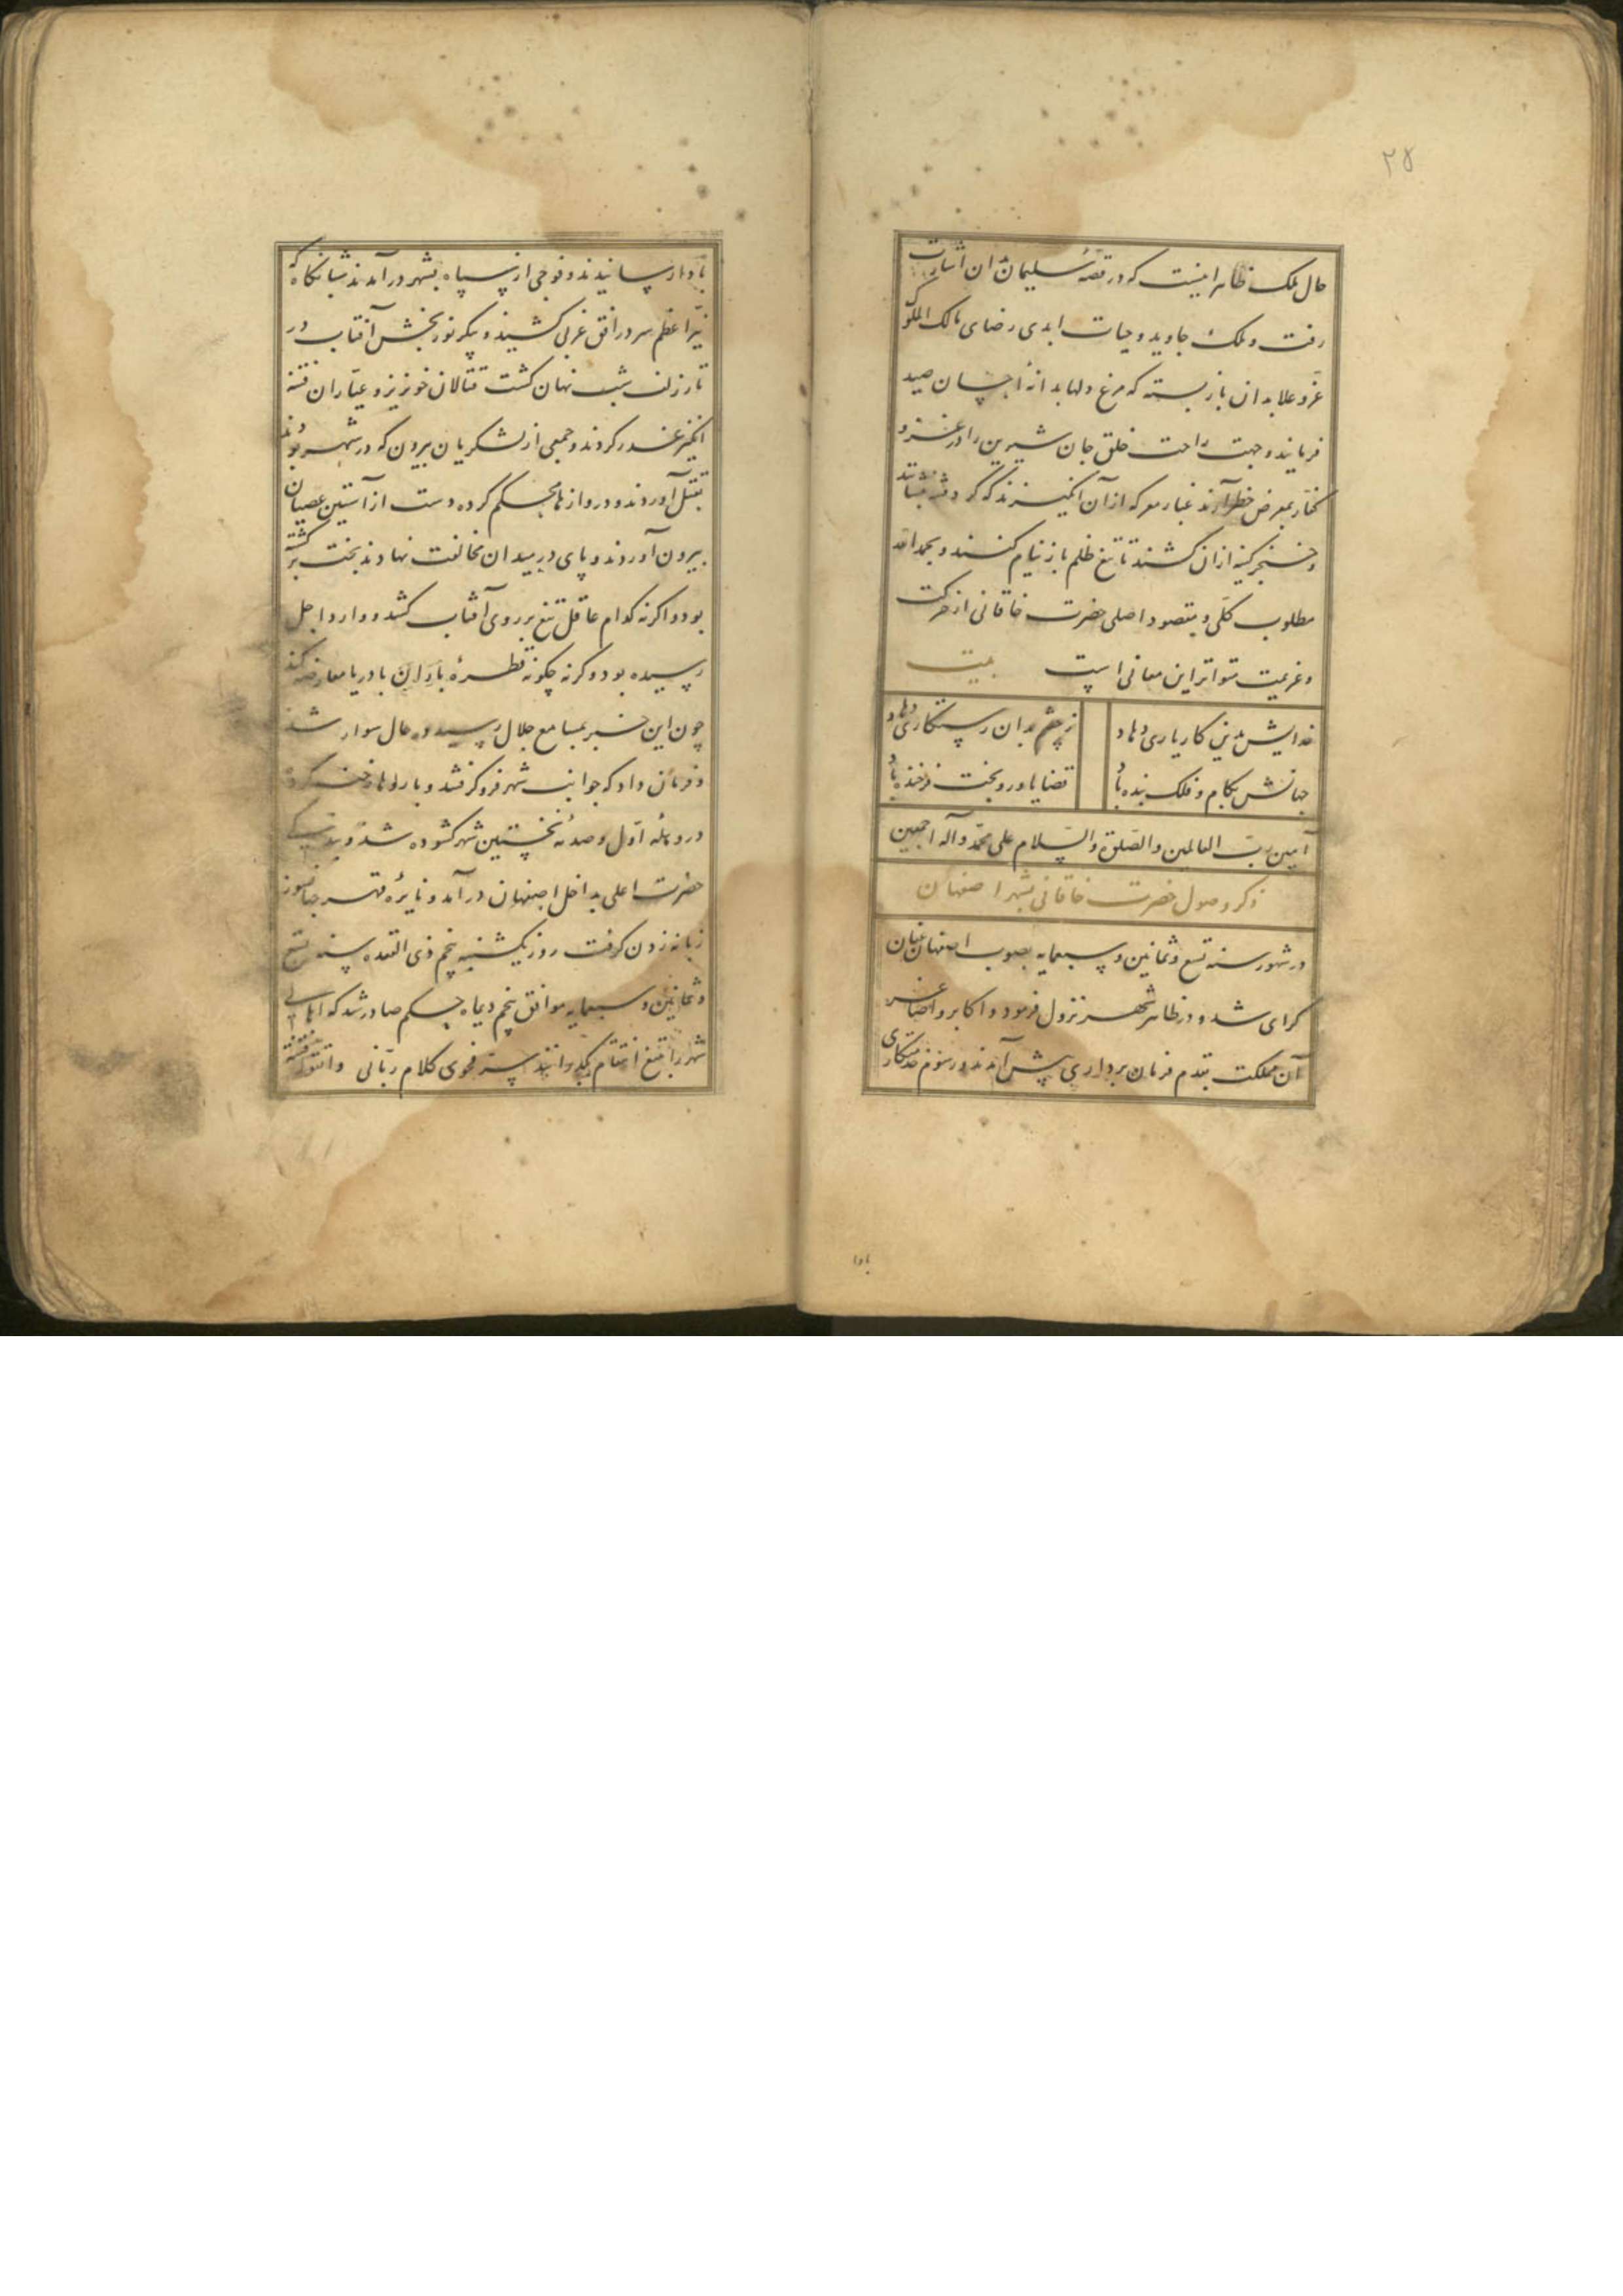 ۲۸
حال ملک ظاهر اینست که در قصه سلیمان بدان اشارت
رفت و ملک جاوید و حیات ابدی رضای مالک الملوک
عز و علا بدان باز بسته که مرغ دلها بدانه احسان صید
فرمایند و جهت راحت خلق جان شیرین را در غزو
کفار بمعرض خطر آرند غبار معرکه از آن انگیزند که گرد فتنه بنشانند
و خنجر کینه ازان کشند تا تیغ ظلم باز نیام کنند و بحمد الله
مطلوب کلی و مقصود اصلی حضرت خاقانی از حرکت
و عزیمت متواتر این معانی است بیت
خدایش بدین کار یاری دهاد ز چشم بدان رستگاری دهاد
جهانش بکام و فلک بنده باد قضا یاور و بخت فرخنده باد
آمین رب العالمین والصلوة والسلام علی محمد وآله اجمعین
ذکر وصول حضرت خاقانی بشهر اصفهان
در شهور سنه تسع و ثمانین و سبعمایه بصوب اصفهان عنان
گرای شد و در ظاهر شهر نزول فرمود و اکابر و اصاغر
آن مملکت بقدم فرمان برداری پیش آمدند و رسوم خدمتکاری
بادا
بادا رسانیدند و فوجی از سپاه بشهر در آمدند شبانگاه که
نیر اعظم سر در افق غربی کشید و پیکر نور بخش آفتاب در
تار زلف شب نهان گشت قتالان خونریز و عیاران فتنه
انگیز غدر کردند و جمعی از لشکریان بیرون که در شهر بودند
بقتل آوردند و دروازها محکم کرده دست از آستین عصیان
بیرون آوردند و پای در میدان مخالفت نهادند بخت برگشته
بود و اگرنه کدام عاقل تیغ بر روی آفتاب کشد و وارد اجل
رسیده بود و گرنه چگونه قطره باران با دریا معارضه کند
چون این خبر بمسامع جلال رسید در حال سوار شد
و فرمان داد که جوانب شهر فرو گرفتند و بارولها رخنه کرد
در وهله اول و صدمه نخستین شهر گشوده شد و بندگی
حضرت اعلی بداخل اصفهان در آمد و نایره قهر جهانسوز
زبانه زدن گرفت روز یکشنبه پنجم ذی القعده سنه تسع
و ثمانین و سبعمایه موافق پنجم دیماه حکم صادر شد که اهالی
شهر را بتیغ انتقام بگذرانند سر فحوی کلام ربانی واتقوا فتنة